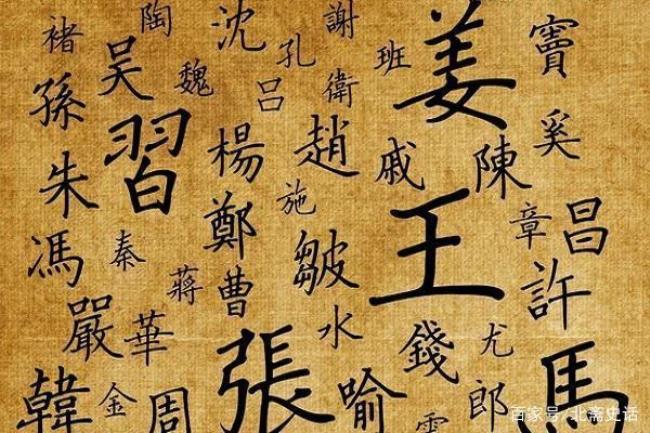 褚 陶 沈 孔 謝 班 姜 竇
孫 吳 魏 呂 衛
習 楊 趙 戚 陳 奚
朱 鄭 施 王 章 昌
馮 秦 蔣 曹 皺 許
嚴 華 水 錢 尤
韓 金 周 張 喻 郎 馬
百家号/北斋史话